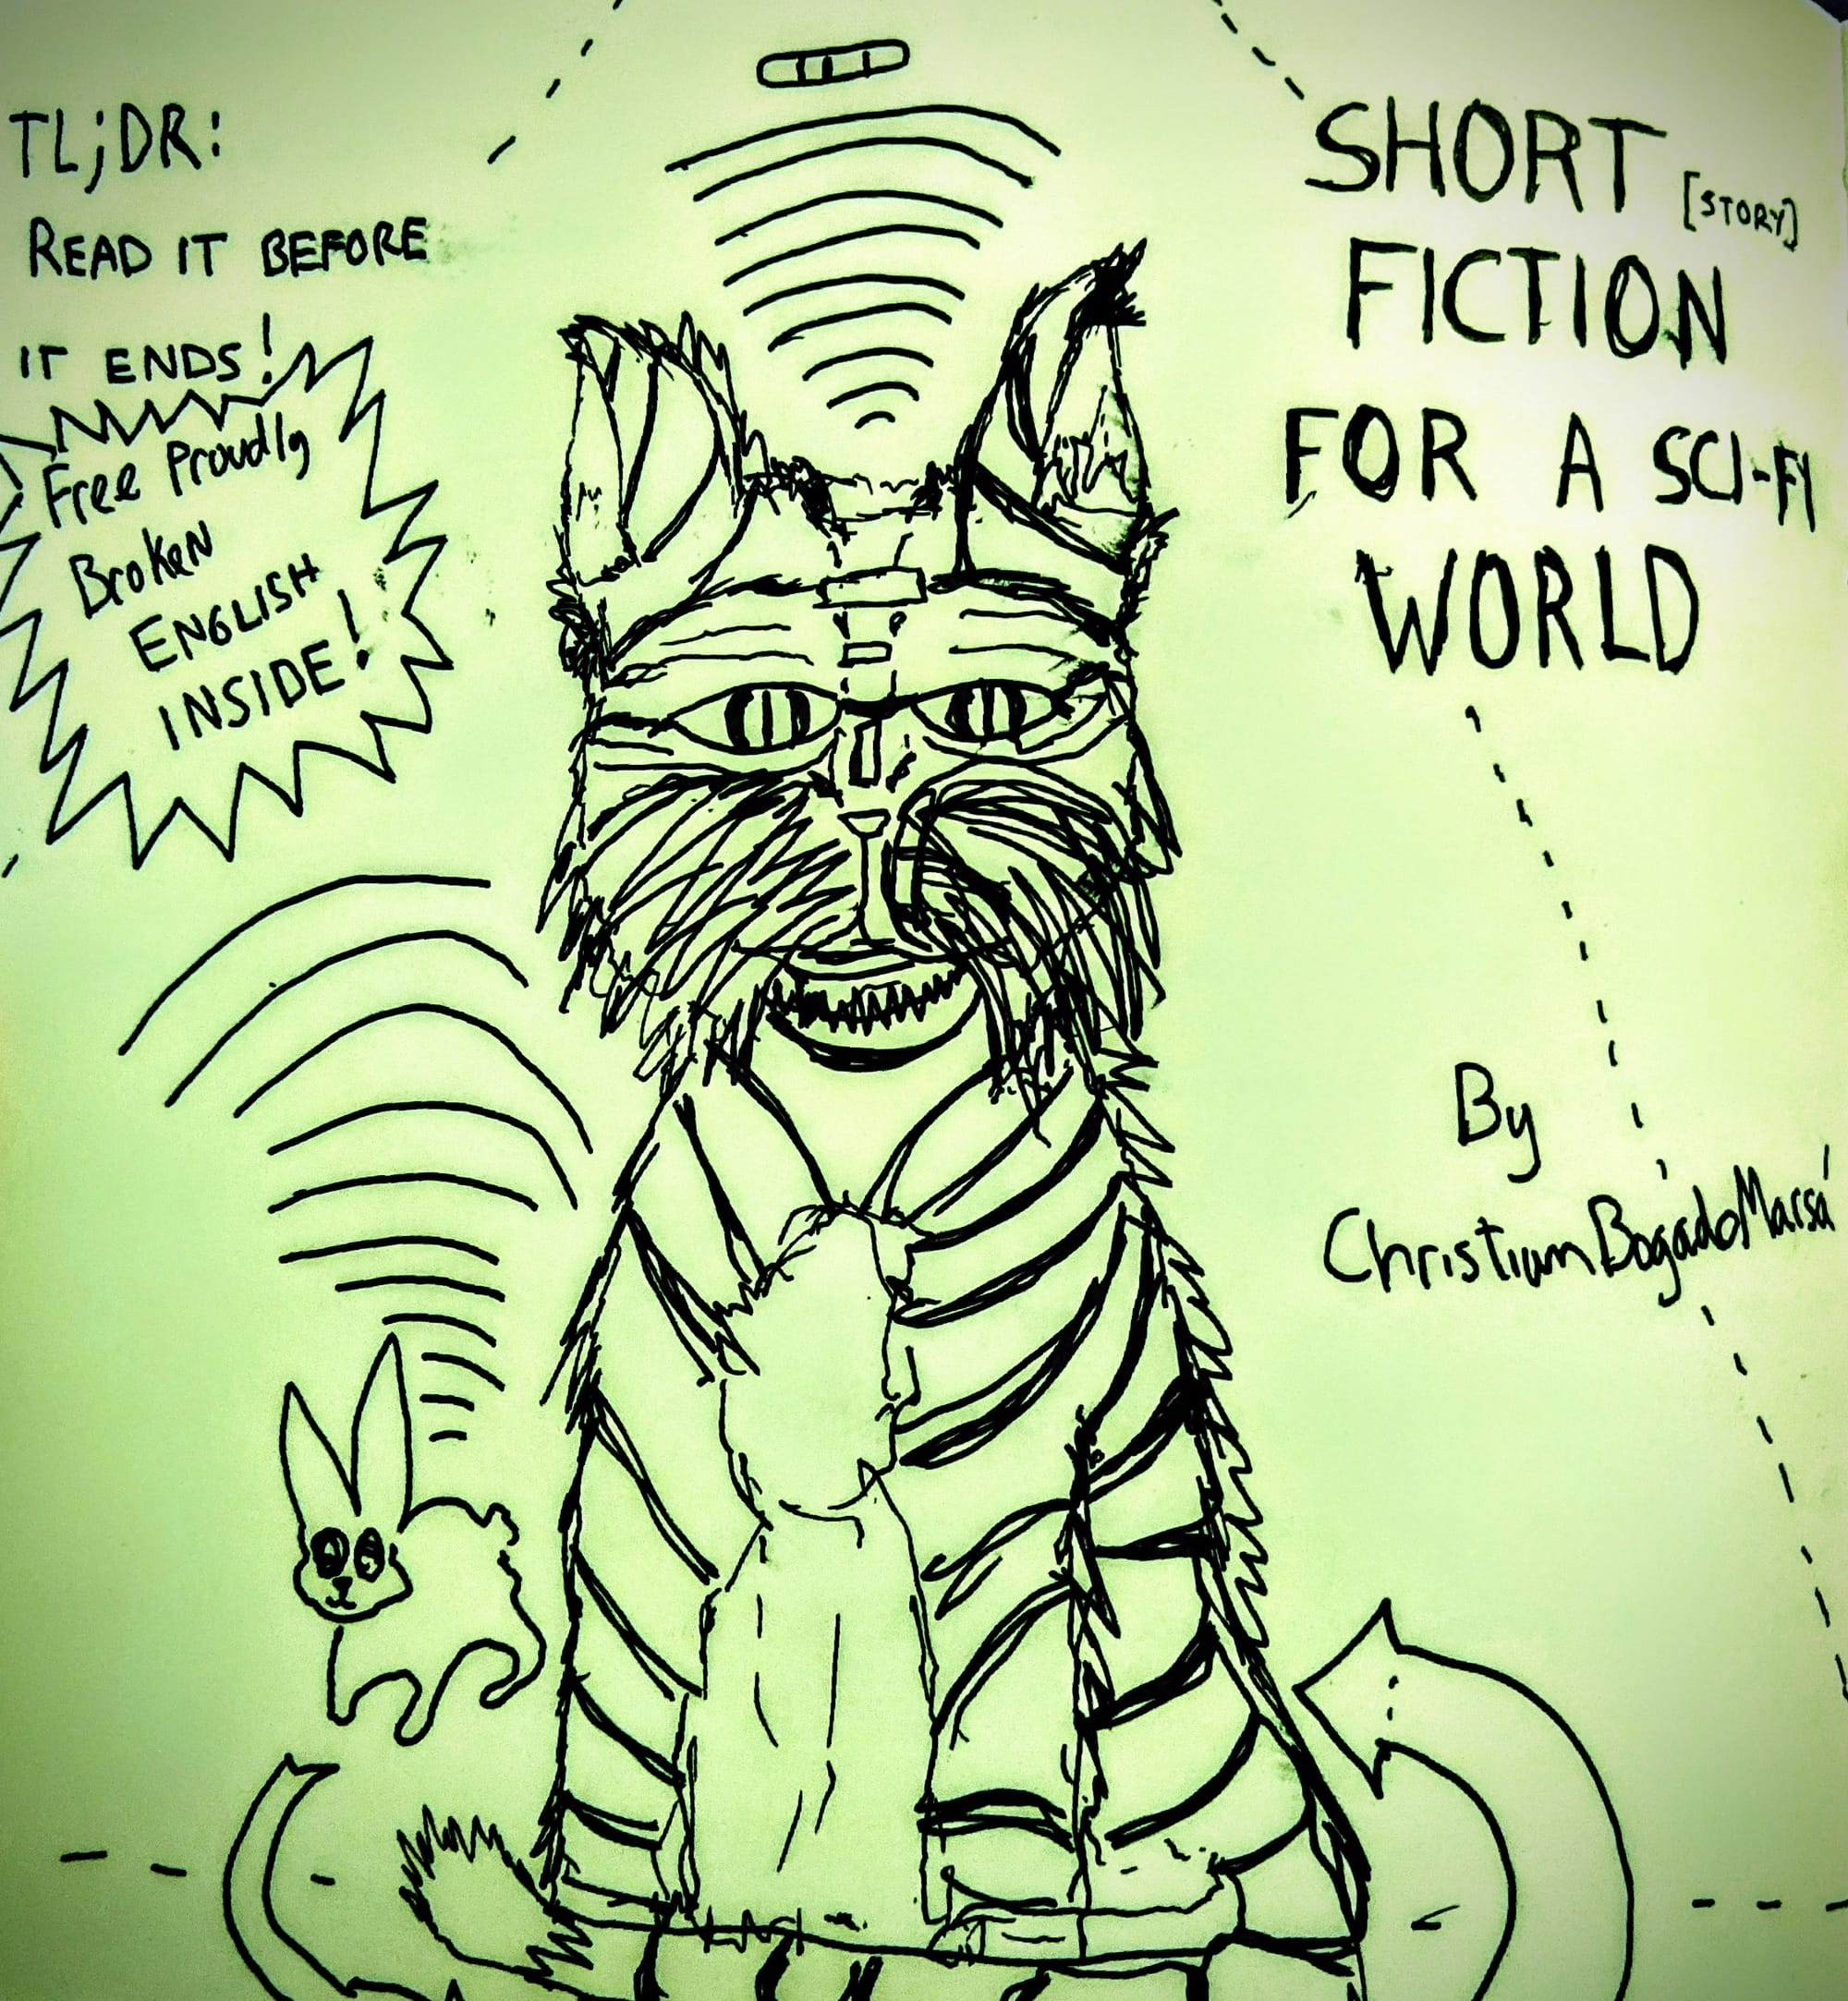 TL;DR:
READ IT BEFORE
IT ENDS!
Free Proudly
Broken
ENGLISH
INSIDE!
SHORT [STORY]
FICTION
FOR A SCI-FI
WORLD
By
Christian Bogado Marsá